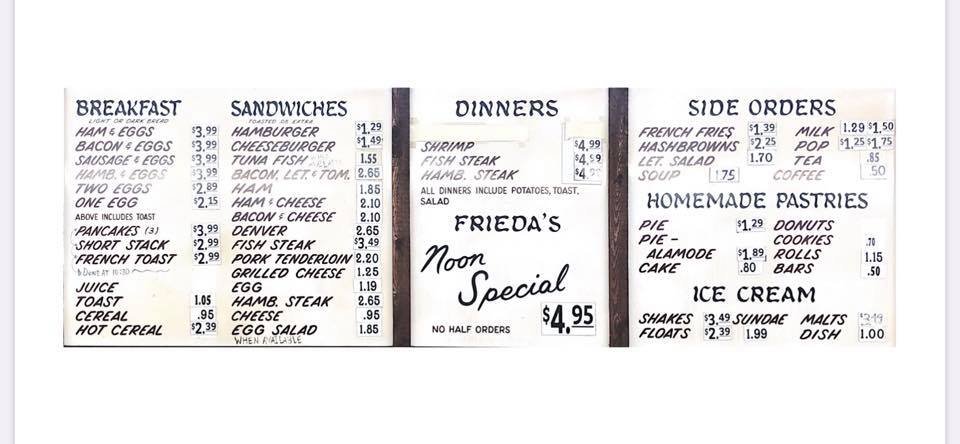 BREAKFAST
LIGHT OR DARK BREAD
HAM & EGGS $3,99
BACON & EGGS $3,99
SAUSAGE & EGGS $3,99
HAMB. & EGGS $3,99
TWO EGGS $2,89
ONE EGG $2,15
ABOVE INCLUDES TOAST
PANCAKES (3) $3,99
SHORT STACK $2,99
FRENCH TOAST $2,99
DONE AT 10:30
JUICE
TOAST 1.05
CEREAL .95
HOT CEREAL $2,39
SANDWICHES
TOASTED 5¢ EXTRA
HAMBURGER $1,29
CHEESEBURGER $1,49
TUNA FISH 1.55
BACON, LET. & TOM. 2.65
HAM 1.85
HAM & CHEESE 2.10
BACON & CHEESE 2.10
DENVER 2.65
FISH STEAK $3,49
PORK TENDERLOIN 2.20
GRILLED CHEESE 1.25
EGG 1.19
HAMB. STEAK 2.65
CHEESE .95
EGG SALAD 1.85
WHEN AVAILABLE
DINNERS
SHRIMP $4,99
FISH STEAK
HAMB. STEAK
ALL DINNERS INCLUDE POTATOES, TOAST,
SALAD
FRIEDA'S
Noon
Special
NO HALF ORDERS $4,95
SIDE ORDERS
FRENCH FRIES $1,39 MILK 1.29 $1,50
HASHBROWNS $2,25 POP $1,25 $1,75
LET. SALAD 1.70 TEA .85
SOUP 1.75 COFFEE .50
HOMEMADE PASTRIES
PIE $1,29 DONUTS
PIE - COOKIES .70
ALAMODE $1,89 ROLLS 1.15
CAKE .80 BARS .50
ICE CREAM
SHAKES $3,49 SUNDAE MALTS $3.49
FLOATS $2,39 1.99 DISH 1.00